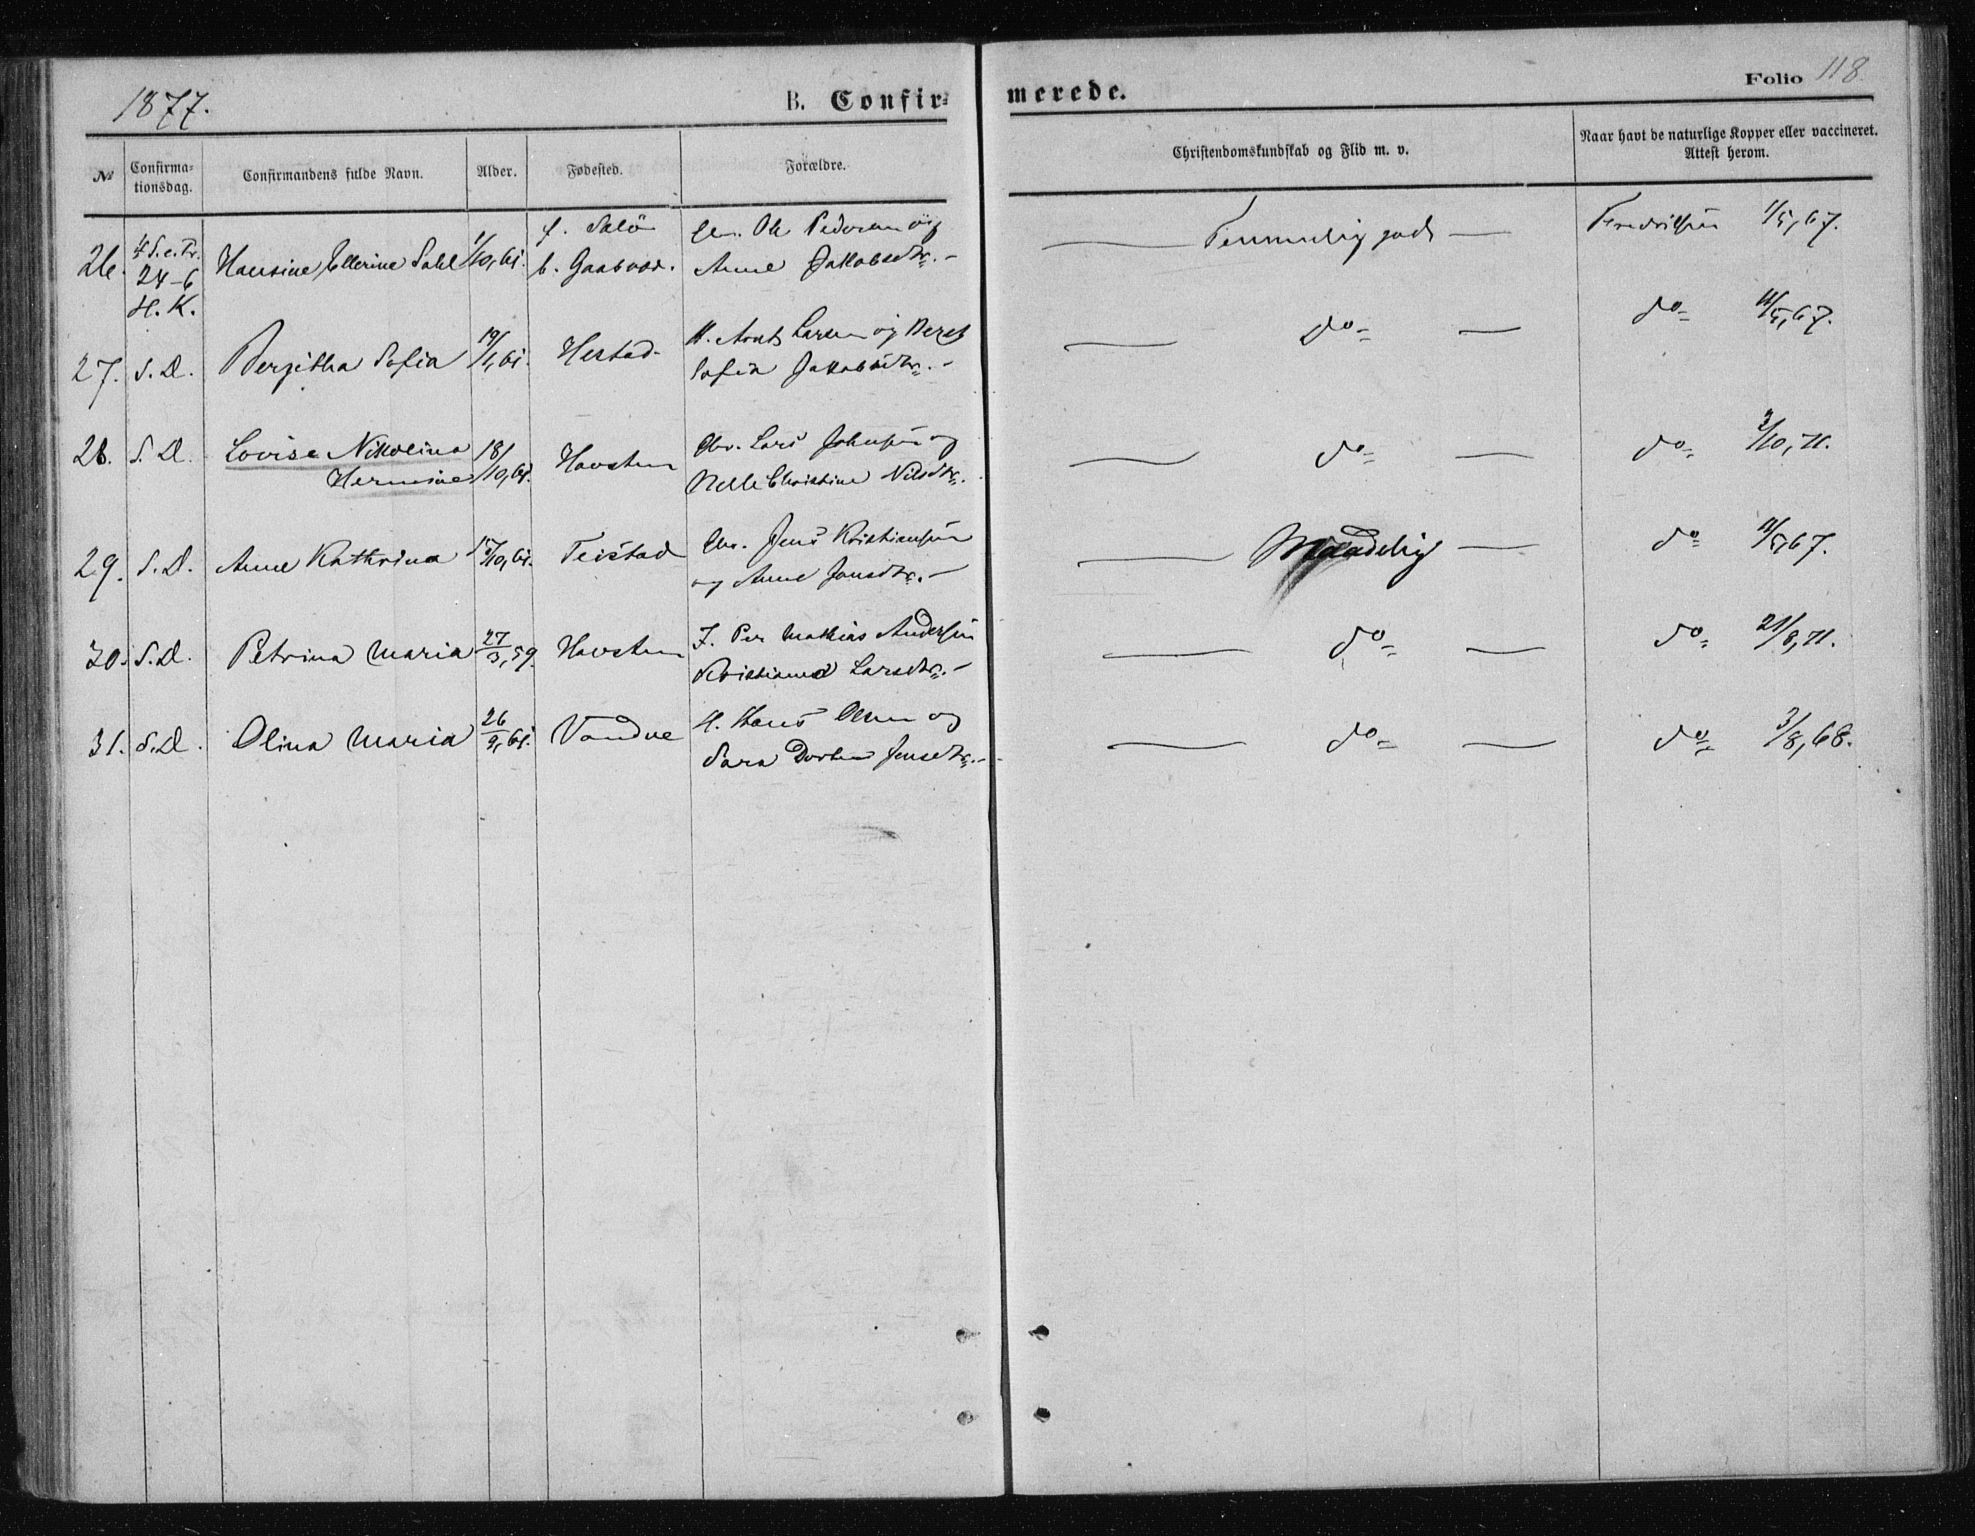 1877.
B. Confir-
merede.
Folio 118.
№
Confirma-
tionsdag.
Confirmandens fulde Navn.
Alder.
Fødested.
Forældre.
Christendomskundskab og Flid m. v.
Naar havt de naturlige Kopper eller vaccineret.
Attest herom.
26.
4 S. e. Tr.
24-6
H. K.
Hansine Ellerine Dahl
1/10, 61.
f. Salö
b. Gaasvær.
Ole Pedersen og
Anne Jakobsdtr.
Temmelig godt
Fredriksen 1/5, 67.
27. S. D. Bergitha Sofia 19/1, 61. Hestad
H. Arnt Larsen og Beret
Sofia Jakobsdtr.
do 11/5, 67.
do
28. S. D. Lovise Nikolina
Hermine
18/10, 61. Havsten
Lars Johnsen og
Christine Nilsdtr.
do
do 2/10, 71.
29. S. D. Anne Kathrina /10, 61. Teistad
Jens Kristiansen
og Anne Jonsdtr.
Maadelig
do 11/5, 67.
30. S. D. Petrina Maria 27/3, 59. Havsten
I. Per Mathias Andersen
Kristianna Larsdtr.
do
do 21/8, 71.
31. S. D. Olina Maria 26/9, 61. Vandve
H. Hans Olsen og
Sara Dortea Jensdtr.
do
do 3/8, 68.